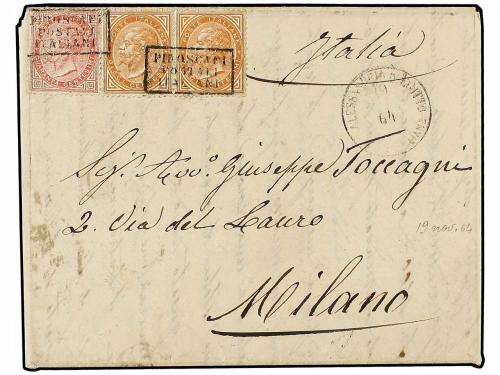 PIROSCAFI
POSTALI
ITALIANI
PIROSCAFI
POSTALI
Italia
ALESSANDRIA D'EGITTO
19
64
Sig. Avvo. Giuseppe Toccagni
2. Via del Lauro
19 nov. 64
Milano